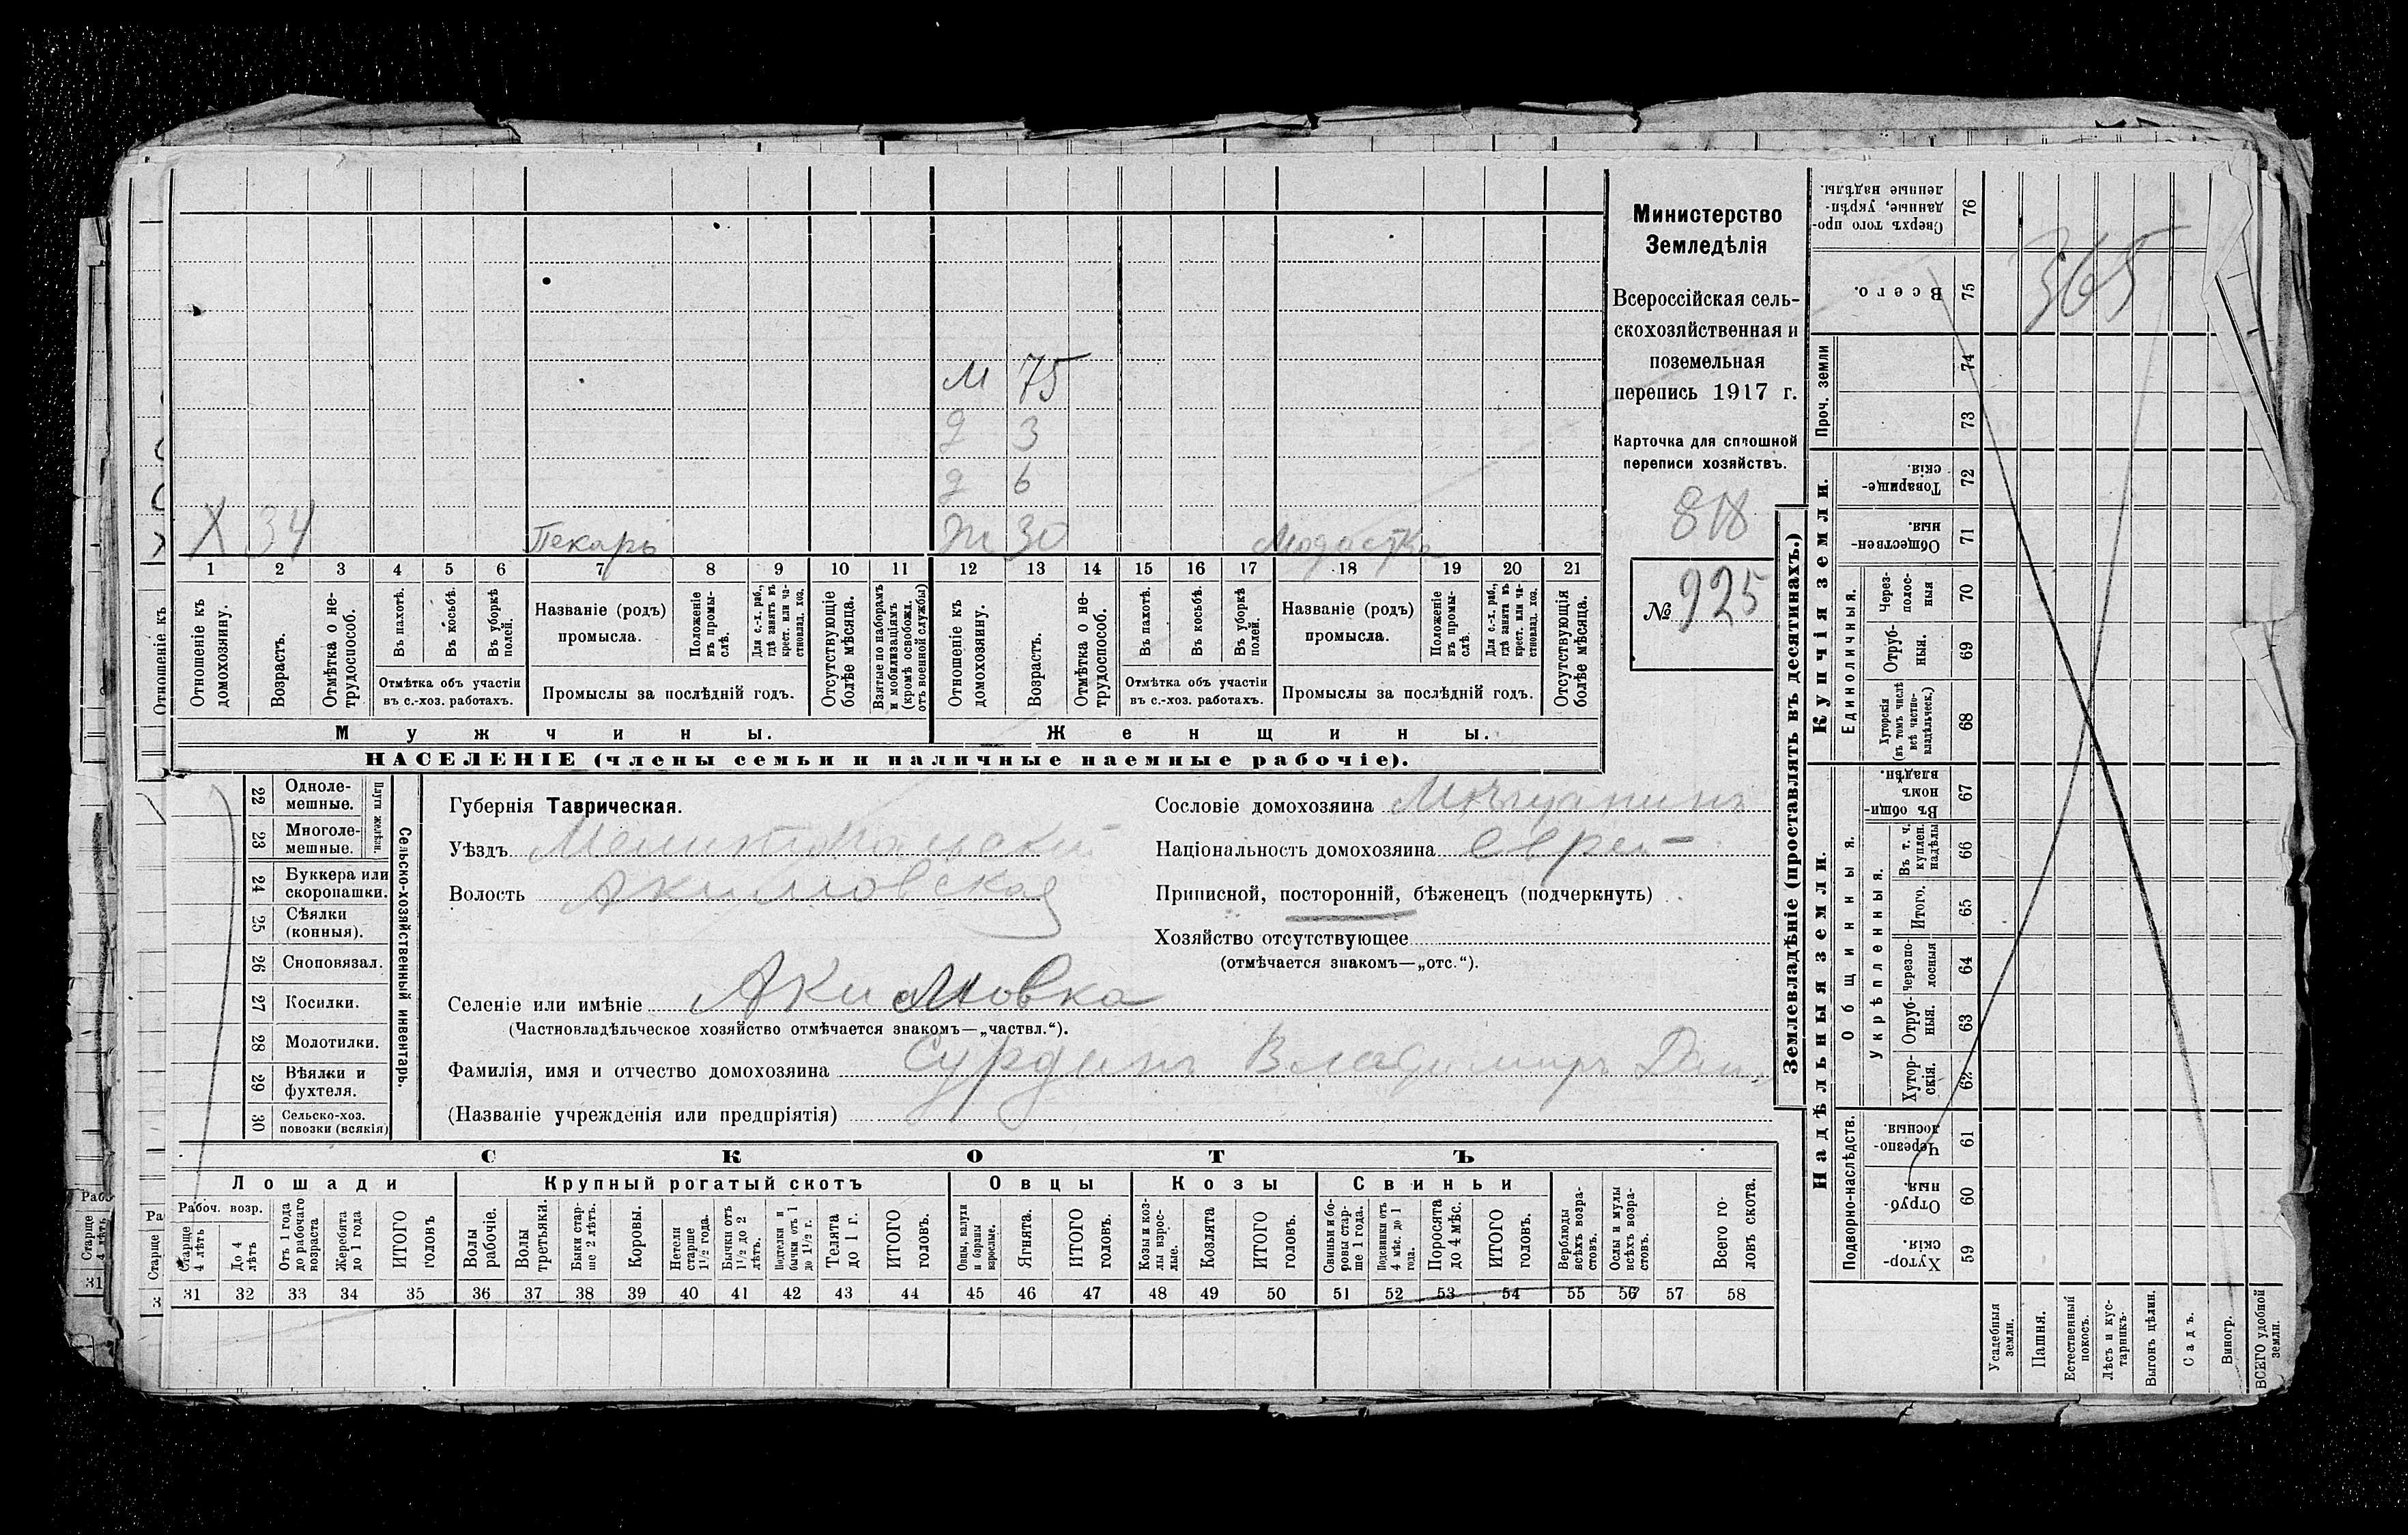 Министерство
Земледѣлія
Всероссійская сель-
скохозяйственная и
поземельная
перепись 1917 г.
Карточка для сплошной
переписи хозяйствъ.
818
№ 925
М 75
д 3
д 6
Х 34 Пекарь Ж 30 Модистка
1 2 3 4 5 6 7 8 9 10 11 12 13 14 15 16 17 18 19 20 21
Отношеніе къ домохозяину.
Возрастъ.
Отмѣтка о не-трудоспособ.
Въ пахотѣ.
Въ косьбѣ.
Въ уборкѣ полей.
Отмѣтка объ участіи
въ с.-хоз. работахъ.
Названіе (родъ)
промысла.
Положеніе въ промы-слѣ.
Для с.-х. раб., гдѣ занятъ въ крест. или ча-стновлад. хоз.
Промыслы за послѣдній годъ.
Отсутствующіе болѣе мѣсяца.
Взятые по наборамъ и мобилизаціямъ (кромѣ освобожд. отъ военной службы)
Отношеніе къ домохозяину.
Возрастъ.
Отмѣтка о не-трудоспособ.
Въ пахотѣ.
Въ косьбѣ.
Въ уборкѣ полей.
Отмѣтка объ участіи
въ с.-хоз. работахъ.
Названіе (родъ)
промысла.
Положеніе въ промы-слѣ.
Для с.-х. раб., гдѣ занята въ крест. или ча-стновлад. хоз.
Промыслы за послѣдній годъ.
Отсутствующія болѣе мѣсяца.
Мужчины.
Женщины.
НАСЕЛЕНІЕ (члены семьи и наличные наемные рабочіе).
22 Одноле-мешные.
23 Многоле-мешные.
Плуги желѣзн.
24 Буккера или скоропашки.
25 Сѣялки (конныя).
26 Сноповязал.
27 Косилки.
28 Молотилки.
29 Вѣялки и фухтеля.
30 Сельско-хоз. повозки (всякія)
Сельско-хозяйственный инвентарь.
Губернія Таврическая.
Уѣздъ Мелитопольскій
Волость Акимовская
Селеніе или имѣніе Акимовка
(Частновладѣльческое хозяйство отмѣчается знакомъ—„частвл.“).
Фамилія, имя и отчество домохозяина Сурдинъ Владимиръ
(Названіе учрежденія или предпріятія)
Сословіе домохозяина Мѣщанинъ
Національность домохозяина еврей
Приписной, посторонній, бѣженецъ (подчеркнуть)
Хозяйство отсутствующее
(отмѣчается знакомъ—„отс.“).
СКОТЪ
Лошади
Крупный рогатый скотъ
Овцы
Козы
Свиньи
Рабоч. возр.
Старше 4 лѣтъ
До 4 лѣтъ
Отъ 1 года до рабочаго возраста
Жеребята до 1 года
ИТОГО головъ
Волы рабочіе.
Волы третьяки.
Быки стар-ше 2 лѣтъ.
Коровы.
Нетели старше 1½ года.
Бычки отъ 1½ до 2 лѣтъ.
Подтелки и бычки отъ 1 до 1½ г.
Телята до 1 г.
ИТОГО головъ.
Овцы, валухи и бараны взрослые.
Ягнята.
ИТОГО головъ.
Козы и коз-лы взрос-лые.
Козлята
ИТОГО головъ.
Свиньи и бо-ровы стар-ше 1 года.
Подсвинки отъ 4 мѣс. до 1 года.
Поросята до 4 мѣс.
ИТОГО головъ.
Верблюды всѣхъ возра-стовъ.
Ослы и мулы всѣхъ возра-стовъ.
Всего го-ловъ скота.
31 32 33 34 35 36 37 38 39 40 41 42 43 44 45 46 47 48 49 50 51 52 53 54 55 56 57 58
Землевладѣніе (проставлять въ десятинахъ.)
Купчія земли.
Надѣльныя земли.
Сверхъ того про-данные, укрѣп-ленные надѣлы. 76
Всего. 75
365
Проч. земли
74
73
Товарище-скія. 72
Обществен-ныя. 71
Единоличныя.
Через-полос-ныя 70
Отруб-ныя. 69
Хуторскія (въ томъ числѣ всѣ частно-владѣльческ.) 68
Общинныя.
Въ общи-номъ владѣн. 67
Укрѣпленныя.
Въ т. ч. куплен. надѣлы 66
Итого. 65
Черезпо-лосныя 64
Отруб-ныя. 63
Хутор-скія. 62
Подворно-наслѣдств.
Черезпо-лосныя 61
Отруб-ныя. 60
Хутор-скія 59
Усадебныя земли.
Пашня.
Естественный покосъ.
Лѣсъ и кус-тарникъ.
Выгонъ цѣлин.
Садъ.
Виногр.
ВСЕГО удобной земли.